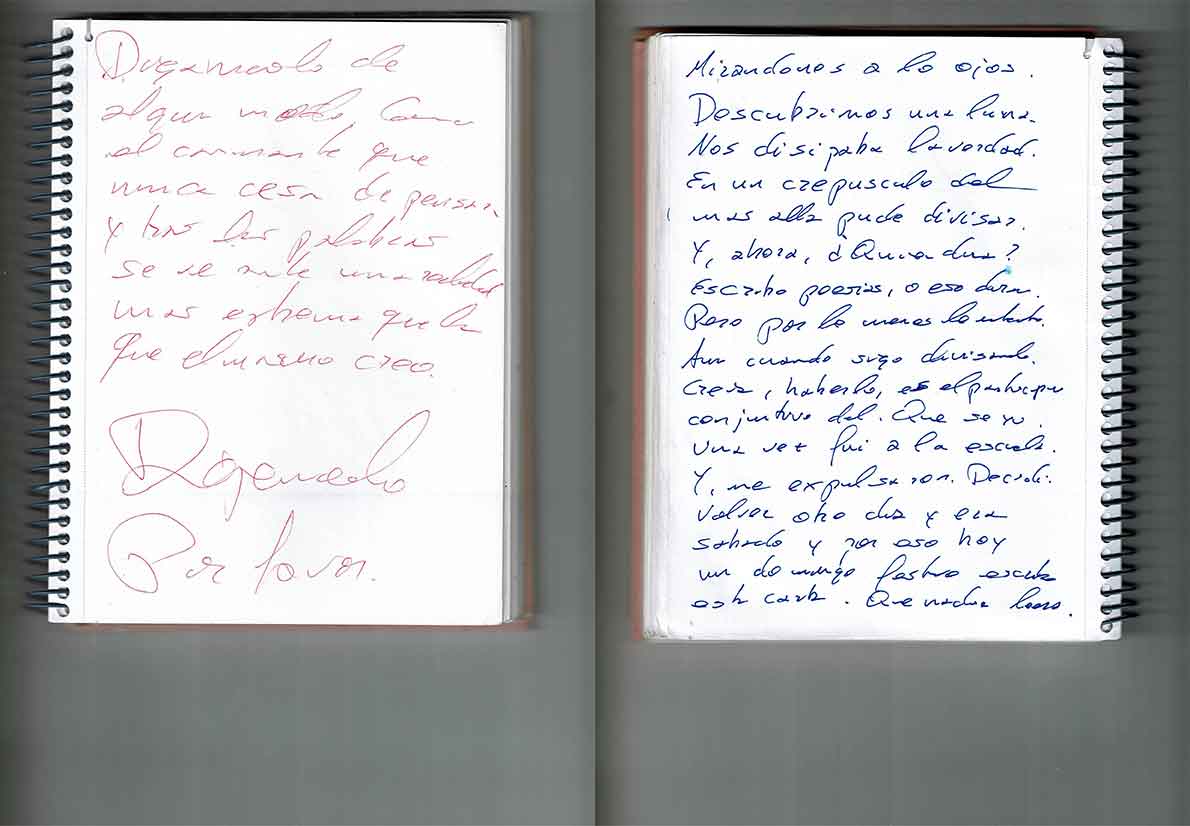 Digamoslo de
algun modo, Como
el caminante que
nunca cesa de pensar
y tras las palabras
se siente una realidad
mas extrema que la
que el mismo creo.
Digamoslo
Por favor.
Mirandonos a lo ojos.
Descubrimos una luna.
Nos disipaba la verdad.
En un crepusculo del
mas alla pude divisar.
Y, ahora, ¿Quien dira?
Escribo poesias, o eso diran.
Pero por lo menos lo intento.
Aun cuando sigo divisando.
Creia, haberlo, es el
conjuntivo del. Que se yo.
Una vez fui a la escuela.
Y, me expulsaron. Decidi.
Volver otro dia y era
sabado y por eso hoy
un domingo festivo escribo
esta carta. Que nadie leera.